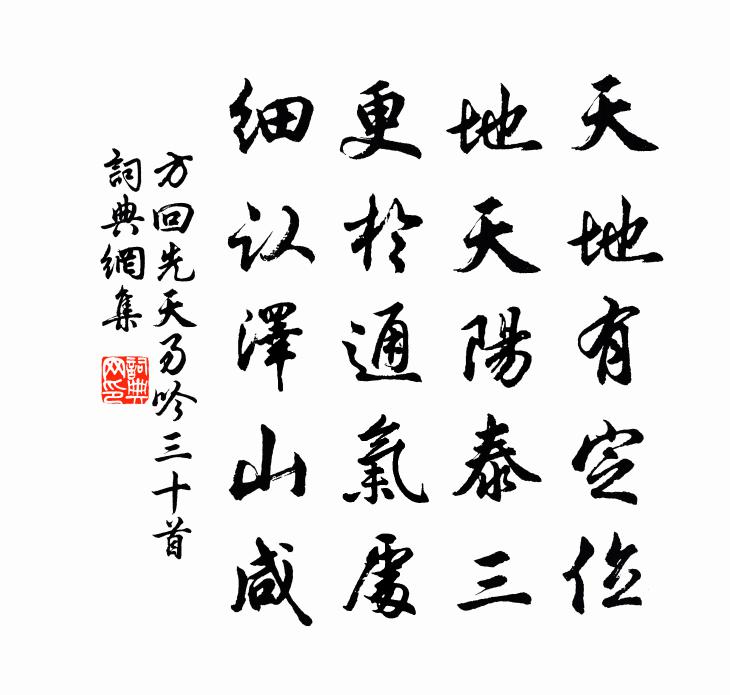 天地有定位
地天陽泰三
更於通氣處
细认澤山咸
方回先天易吟三十首
詞典網集
詞典网印